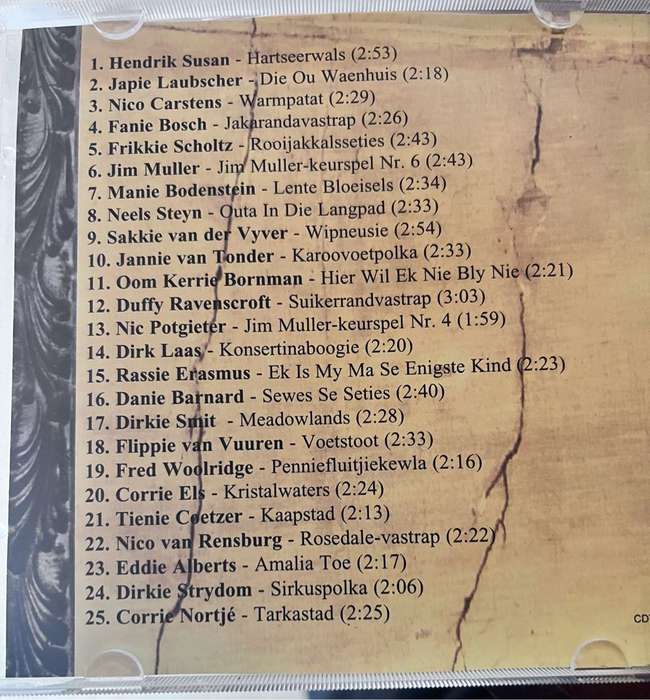 1. Hendrik Susan - Hartseerwals (2:53)
2. Japie Laubscher - Die Ou Waenhuis (2:18)
3. Nico Carstens - Warmpatat (2:29)
4. Fanie Bosch - Jakarandavastrap (2:26)
5. Frikkie Scholtz - Rooijakkalsseties (2:43)
6. Jim Muller - Jim Muller-keurspel Nr. 6 (2:43)
7. Manie Bodenstein - Lente Bloeisels (2:34)
8. Neels Steyn - Outa In Die Langpad (2:33)
9. Sakkie van der Vyver - Wipneusie (2:54)
10. Jannie van Tonder - Karoovoetpolka (2:33)
11. Oom Kerrie Bornman - Hier Wil Ek Nie Bly Nie (2:21)
12. Duffy Ravenscroft - Suikerrandvastrap (3:03)
13. Nic Potgieter - Jim Muller-keurspel Nr. 4 (1:59)
14. Dirk Laas - Konsertinaboogie (2:20)
15. Rassie Erasmus - Ek Is My Ma Se Enigste Kind (2:23)
16. Danie Barnard - Sewes Se Seties (2:40)
17. Dirkie Smit - Meadowlands (2:28)
18. Flippie van Vuuren - Voetstoot (2:33)
19. Fred Woolridge - Penniefluitjiekewla (2:16)
20. Corrie Els - Kristalwaters (2:24)
21. Tienie Coetzer - Kaapstad (2:13)
22. Nico van Rensburg - Rosedale-vastrap (2:22)
23. Eddie Alberts - Amalia Toe (2:17)
24. Dirkie Strydom - Sirkuspolka (2:06)
25. Corrie Nortjé - Tarkastad (2:25)